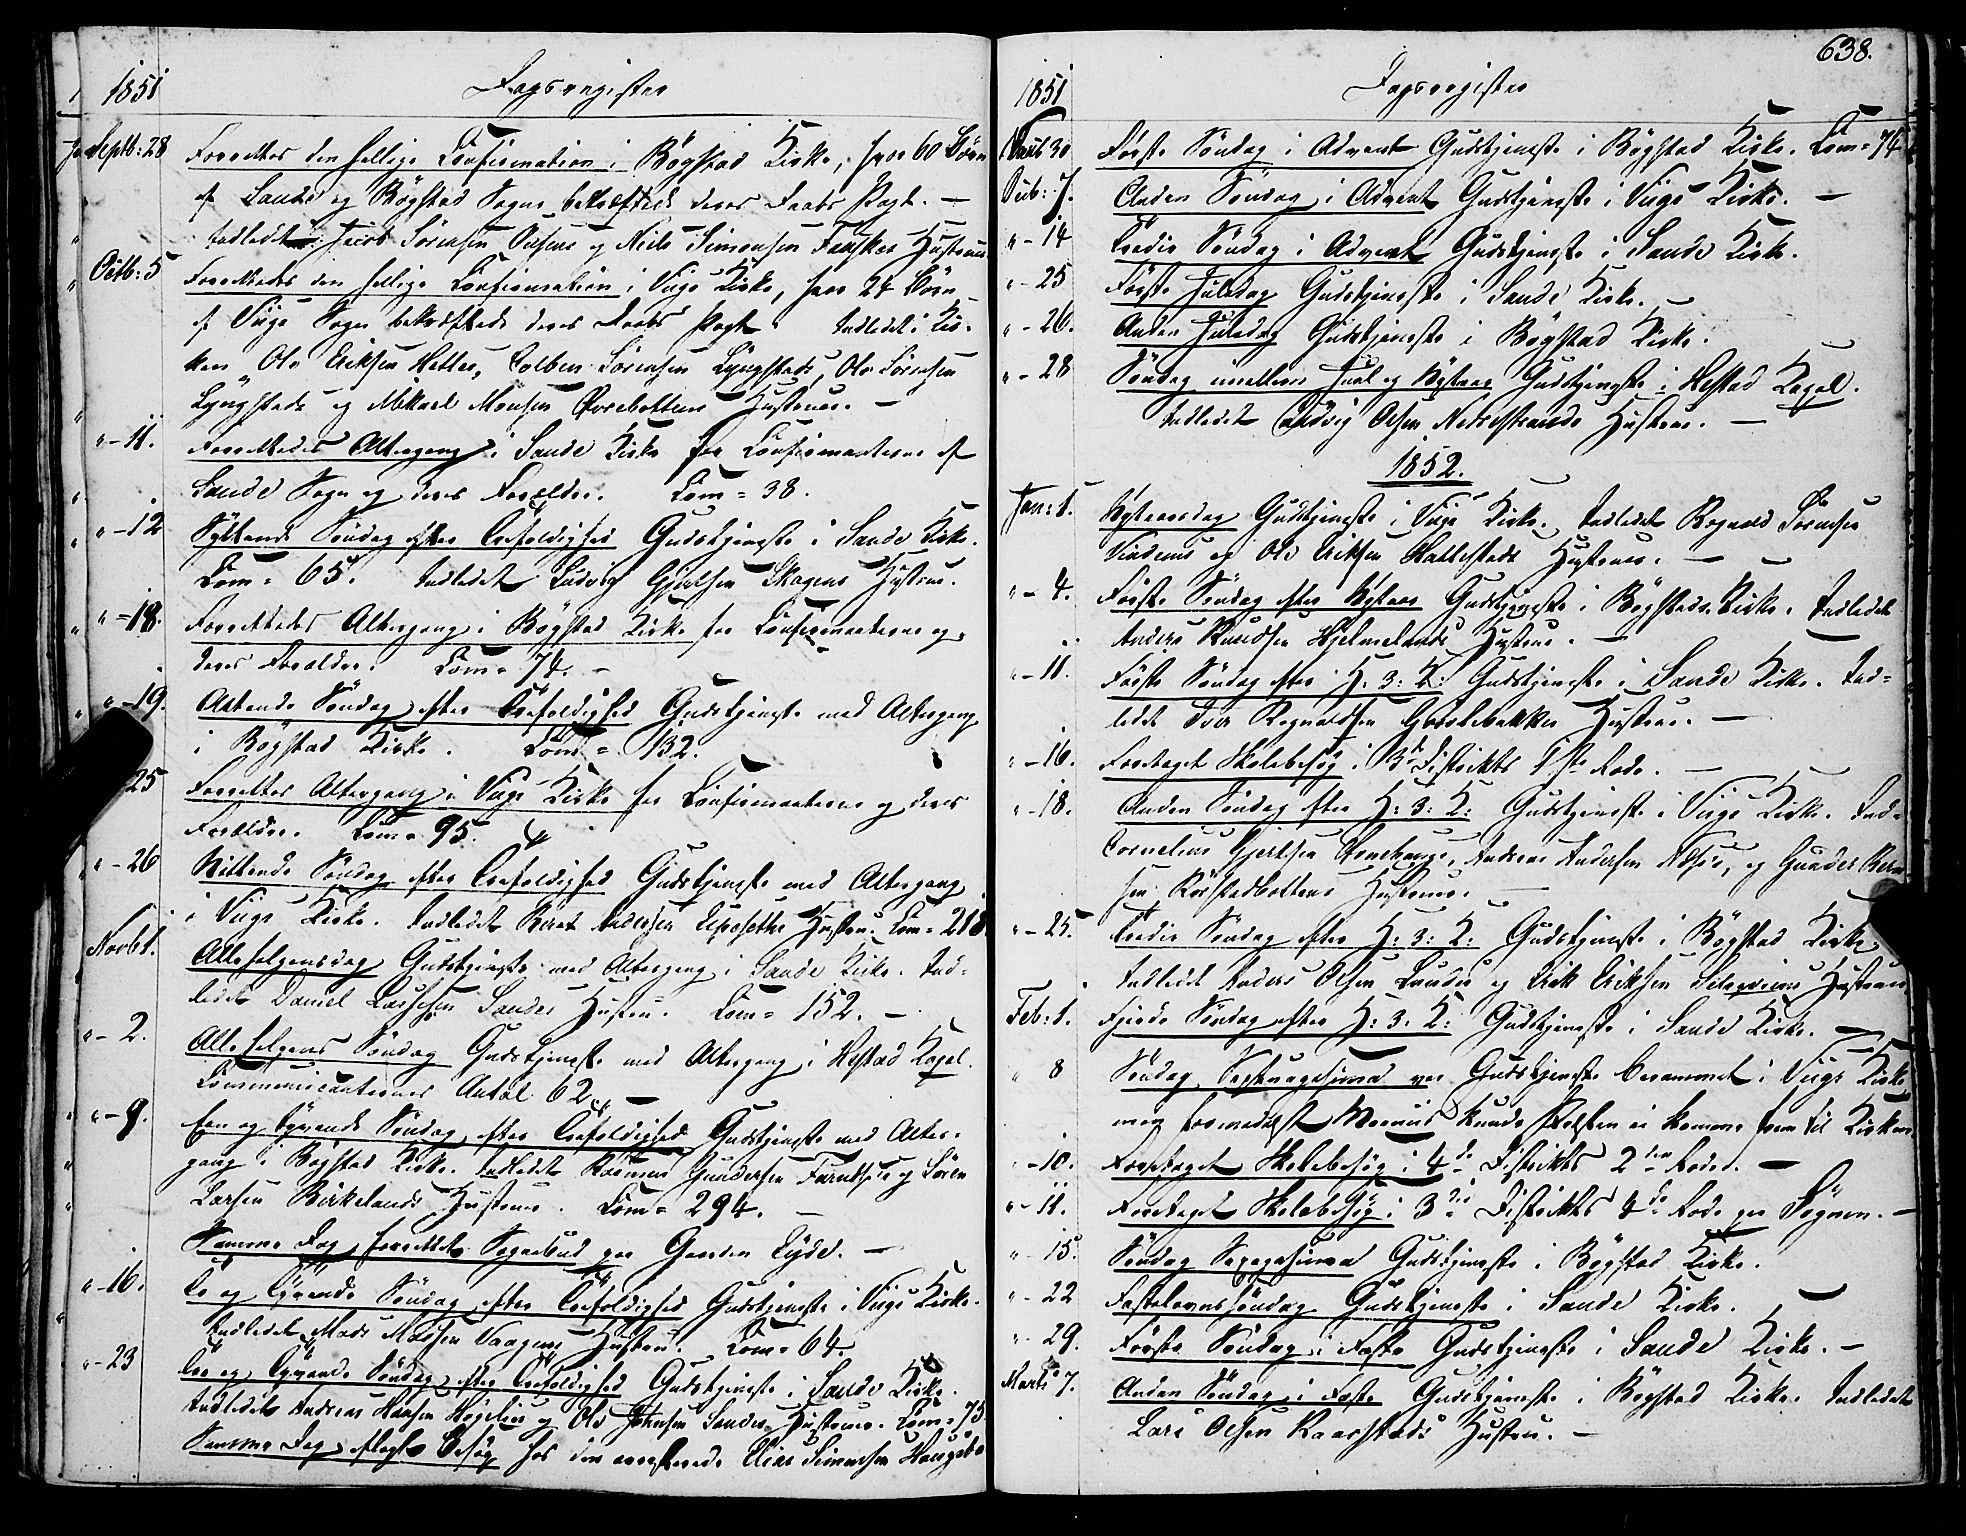 1851 Dagsregister
Septb: 28 Forrettes den hellige Confirmation i Bøgstad Kirke, hvor 60 Børn
af Sande og Bøgstad Sogne bekræftede deres Daabs Pagt. —
Indledet Jacob Sörensen og Niels Simonsen Hustruer
Octb: 5 Forrettedes den hellige Confirmation i Viigs Kirke, hvor 24 Børn
af Viigs Sogn bekræftede deres Daabs Pagt. Indledet i Kir-
ken Ole Eriksen Hetles, Colben Sörensen Lÿngstads, Ole Sörensen
Lÿngstads og Mikael Monsen Øvrebottens Hustruer. —
" - 11. Forrettedes Altergang i Sande Kirke for Confirmanterne af
Sande Sogn og deres Forældre. Com = 38.
" - 12 Syttende Søndag efter Trefoldighed Gudstjeneste i Sande Kirke.
Com = 65. Indledet Ludvig Gjertsen Skagens Hustrue.
" - 18. Forrettedes Altergang i Bøgstad Kirke for Confirmanterne og
deres Forældre. Com = 74. -
" - 19. Attende Søndag efter Trefoldighed Gudstjeneste med Altergang
i Bøgstad Kirke. Com = 132.
25 Forrettes Altergang i Viigs Kirke for Confirmanterne og deres
Forældre. Com = 95.
" - 26 Nittende Søndag efter Trefoldighed Gudstjeneste med Altergang
i Viigs Kirke. Indledet Andersen Hustru. Com = 218
Novb 1. Allehelgensdag Gudstjeneste med Altergang i Sande Kirke. Ind-
ledet Daniel Lassesen Sandes Hustru. Com = 152. —
" - 2. Allehelgens Søndag Gudstjeneste med Altergang i Hestad Kapel.
Communicanternes Antal 62. —
" - 9. Een og Tyvende Søndag efter Trefoldighed Gudstjeneste med Alter-
gang i Bøgstad Kirke. Indledet Rasmus Gundersen og Sören
Larsen Birkelands Hustruer. Com = 294. —
Samme Dag forrettet Sognebud paa Gaarden Eÿde. —
" - 16. To og Tyvende Søndag efter Trefoldighed Gudstjeneste i Viigs Kirke.
Indledet Mads Madsen Vaagenes Hustru. Com = 64.
" - 23 Tre og Tyvende Søndag efter Trefoldighed Gudstjeneste i Sande Kirke.
Indledet Andreas Hansen og Ole Johnsen Sandes Hustruer. Com = 75.
Samme Dag aflagt Besøg hos den arresterede Elias Simonsen
638.
1851 Dagsregister
Novb 30 Første Søndag i Advent Gudstjeneste i Bøgstad Kirke. Com = 74
Decb: 7. Anden Søndag i Advent Gudstjeneste i Viigs Kirke. —
" - 14 Tredie Søndag i Advent Gudstjeneste i Sande Kirke.
" - 25 Første Juledag Gudstjeneste i Sande Kirke. —
" - 26. Anden Juledag Gudstjeneste i Bøgstad Kirke.
" - 28 Søndag imellem Juul og Nytaar Gudstjeneste i Hestad Kapel.
Indledet Ludvig Olsen Nedrestrands Hustrue. —
1852.
Jan: 1. Nytaarsdag Gudstjeneste i Viigs Kirke. Indledet Rognald Sörensen
og Ole Eriksen Hatlestads Hustruer. —
" - 4. Første Søndag efter Nytaar Gudstjeneste i Bøgstad Kirke. Indledet
Anders Knudsen Hjelmelands Hustrue. —
" - 11. Første Søndag efter H: 3: K: Gudstjeneste i Sande Kirke. Ind-
ledet Iver Rognaldsen Hustrue. —
" - 16. Foretaget Skolebesøg i 3d Distrikts 1ste Rode. —
" - 18. Anden Søndag efter H: 3: K: Gudstjeneste i Viigs Kirke. Ind-
Cornelius Gjertsen Andreas Andersen og Gunder
sen Rörstadbottens Hustruer. —
" - 25. Tredie Søndag efter H: 3: K: Gudstjeneste i Bøgstad Kirke
Indledet Anders Olsen Lundes og Erik Eriksen Hustruer
Feb: 1. Fjerde Søndag efter H: 3. K: Gudstjeneste i Sande Kirke. —
" 8 Søndag Septuagesima var Gudstjeneste berammet i Viigs Kirke
men formedelst kunde Præsten ei komme frem til Kirken.
" - 10. Foretaget Skolebesøg i 4de Distrikts 2den Rode. —
" - 11. Foretaget Skolebesøg i 3die Distrikts 4de Rode paa Sögnen. —
" - 15. Søndag Sexagesima Gudstjeneste i Bøgstad Kirke.
" - 22 Fastelavns Søndag Gudstjeneste i Sande Kirke. —
" - 29. Første Søndag i Faste Gudstjeneste i Sande Kirke. —
Marts 7. Anden Søndag i Faste Gudstjeneste i Bøgstad Kirke. Indledet
Lars Olsen Kaarstads Hustru. —